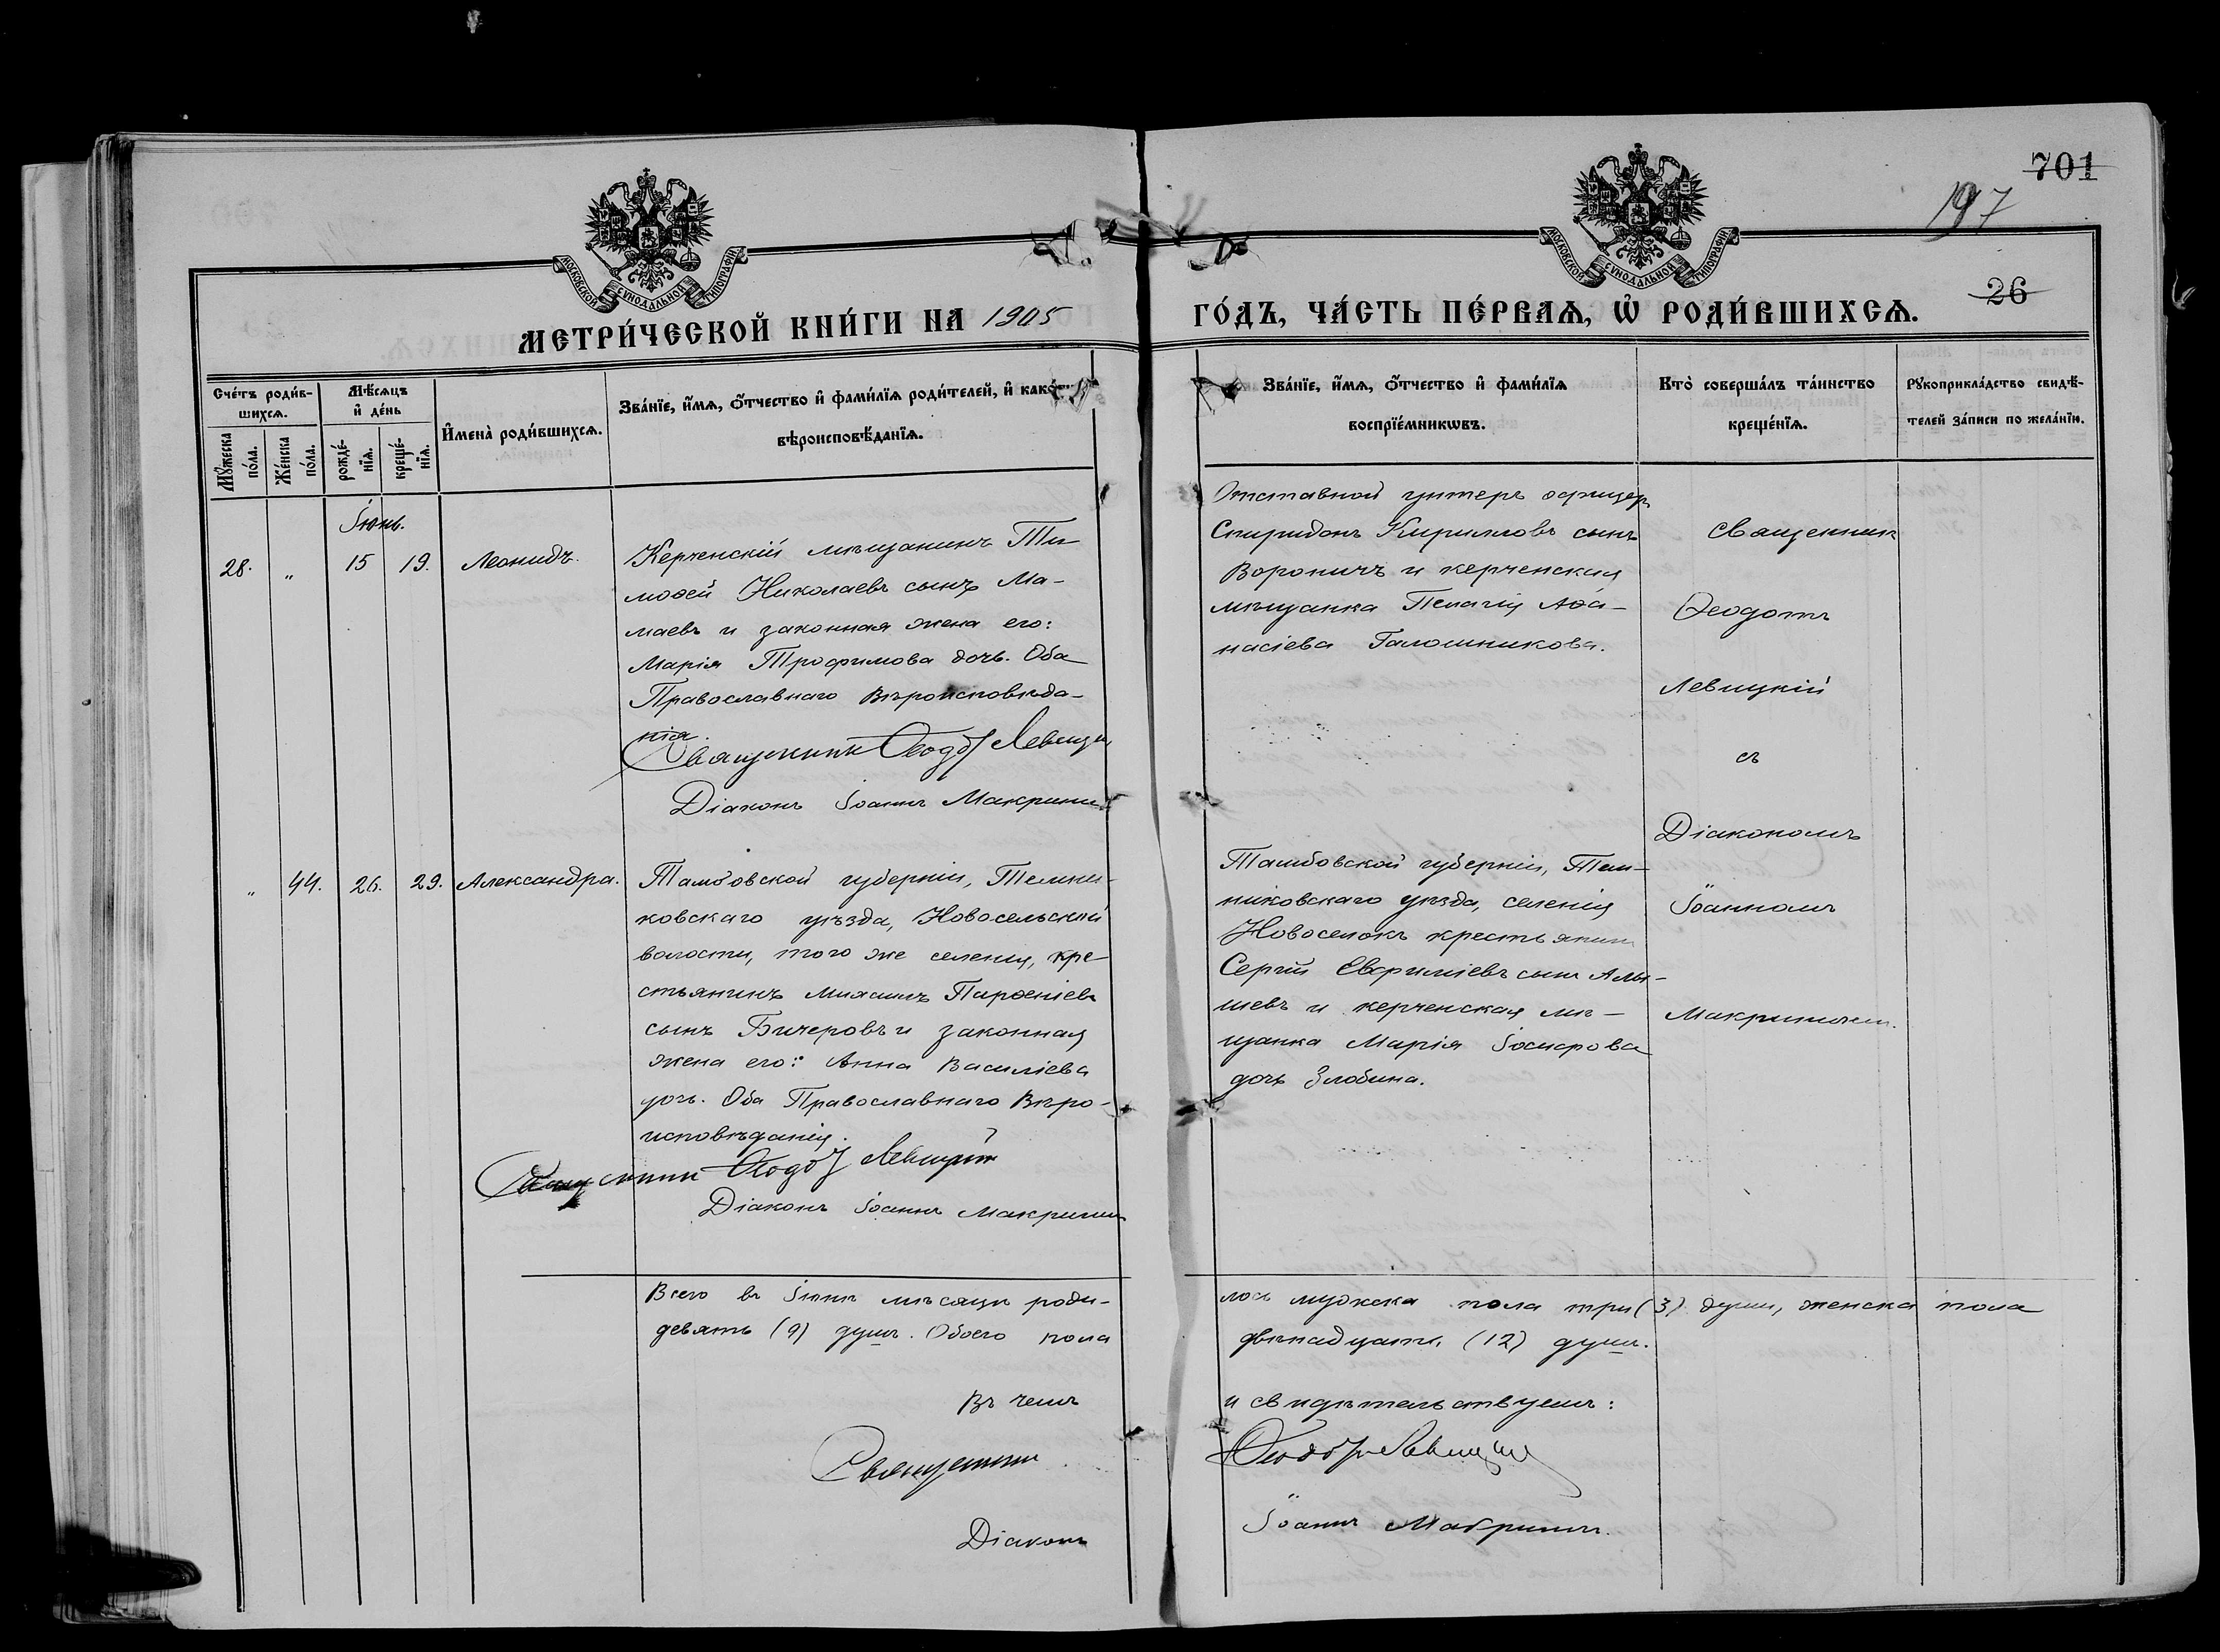 701
197
26
МОСКОВСКОЙ СѴНОДАЛЬНОЙ ТИПОГРАФІИ
МОСКОВСКОЙ СѴНОДАЛЬНОЙ ТИПОГРАФІИ
МЕТРИ́ЧЕСКОЙ КНИ́ГИ НА 1905
ГО́ДЪ, ЧА́СТЬ ПЕ́РВАѦ, Ѡ҆ РОДИ́ВШИХСѦ.
Сче́тъ роди́в-
шихсѧ.
Мꙋ́жеска
по́ла.
Же́нска
по́ла.
Мѣ́сѧцъ
и҆ де́нь
рожде́-
нїѧ.
креще́-
нїѧ.
И҆мена̀ роди́вшихсѧ.
Зва́нїе, и҆́мѧ, ѻ҆́тчество и҆ фами́лїѧ роди́телей, и҆
вѣроисповѣ́данїѧ.
Зва́нїе, и҆́мѧ, ѻ҆́тчество и҆ фами́лїѧ
воспрїе́мникѡвъ.
Кто̀ соверша́лъ та́инство
креще́нїѧ.
Рꙋкоприкла́дство свидѣ́-
телей за́писи по жела́нїю.
Іюнь.
28. " 15 19. Леонидъ.
Керченскій мѣщанинъ Ти-
моѳей Николаевъ сынъ Ма-
маевъ и законная жена его:
Марія Трофимова дочь. Оба
Православнаго Вѣроисповѣда-
нія.
Священникъ Ѳеодотъ Левицкій
Діаконъ Іоаннъ
Отставной унтеръ офицеръ
Спиридонъ Кирилловъ сынъ
Вороничъ и керченская
мѣщанка Пелагія Аѳа-
насіева Галошникова.
Священникъ
Ѳеодотъ
Левицкій
съ
Діакономъ
Іоанномъ
" 44. 26. 29. Александра.
Тамбовской губерніи, Темни-
ковскаго уѣзда, Новосельской
волости, того же селенія, кре-
стьянинъ Михаилъ Парѳеніевъ
сынъ Бичеровъ и законная
жена его: Анна Василіева
дочь. Оба Православнаго Вѣро-
исповѣданія.
Священникъ Ѳеодотъ Левицкій
Діаконъ Іоаннъ
Тамбовской губерніи, Тем-
никовскаго уѣзда, селенія
Новоселокъ крестьянинъ
Сергій Евфиміевъ сынъ
и керченская мѣ-
щанка Марія
дочь Злобина.
Всего въ Іюнѣ мѣсяцѣ роди-
лось мужеска пола три (3) души, женска пола
девять (9) душъ. Обоего пола
двѣнадцать (12) душъ.
Въ чемъ
и свидѣтельствуемъ:
Священникъ
Ѳеодотъ Левицкій
Діаконъ
Іоаннъ